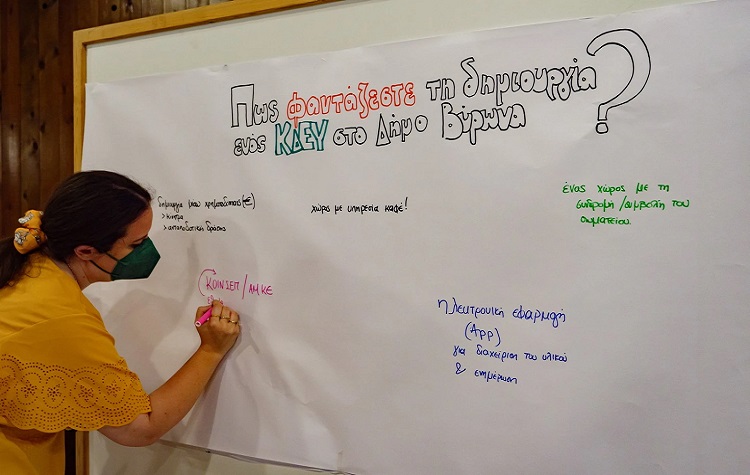 Πως φαντάζεστε τη δημιουργία
ενός ΚΔΕΥ στο Δήμο Βύρωνα ?
δημιουργία μέσω χρηματοδότησης (€)
> κίνημα
> ανταποδοτικής δράσης
χώρος με υπηρεσία καφέ!
ένας χώρος με τη
συνδρομή / συμβολή του
σωματείου.
ΚΟΙΝΣΕΠ / ΑΜΚΕ
ηλεκτρονική εφαρμογή
(App)
για διαχείριση του υλικού
& ενημέρωση